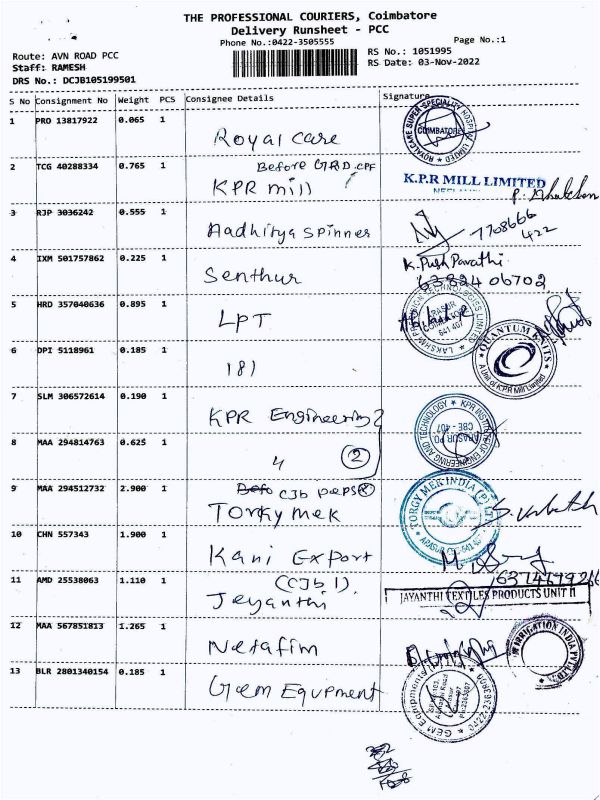 THE PROFESSIONAL COURIERS, Coimbatore
Delivery Runsheet - PCC
Phone No.:0422-3505555
Page No.:1
Route: AVN ROAD PCC
Staff: RAMESH
DRS No.: DCJB105199501
RS No.: 1051995
RS Date: 03-Nov-2022
S No Consignment No Weight PCS Consignee Details Signature
1 PRO 13817922 0.065 1 Royal care
ROYALCARE SUPER SPECIALITY HOSPITAL LIMITED COIMBATORE
2 TCG 40288334 0.765 1 Before GRD CPF
KPR mill
K.P.R MILL LIMITED
3 RJP 3036242 0.555 1 Aadhitya spinner
7708666
422
4 IXM 501757862 0.225 1 Senthur
K. Push Parathi
63824 06702
5 HRD 357040636 0.895 1 LPT
ARASUR COIMBATORE 641 407
6 DPI 5118961 0.185 1 181
QUANTUM KNITS
A Unit of K.P.R Mill Limited
7 SLM 306572614 0.190 1 KPR Engineering
KPR INSTITUTE OF ENGINEERING AND TECHNOLOGY
ARASUR PO.
CBE - 407
8 MAA 294814763 0.625 1 4 2
9 MAA 294512732 2.900 1 CJb
TORGY MEK
TORGY MEK INDIA (P) LTD
10 CHN 557343 1.900 1 Kani Export
11 AMD 25538063 1.110 1 (CJb 1)
Jeyanthi
JAYANTHI TEXTILES PRODUCTS UNIT II
12 MAA 567851813 1.265 1 Netafim
IRRIGATION INDIA PVT LTD
13 BLR 2801340154 0.185 1 Gem Equpment
GEM Equipments